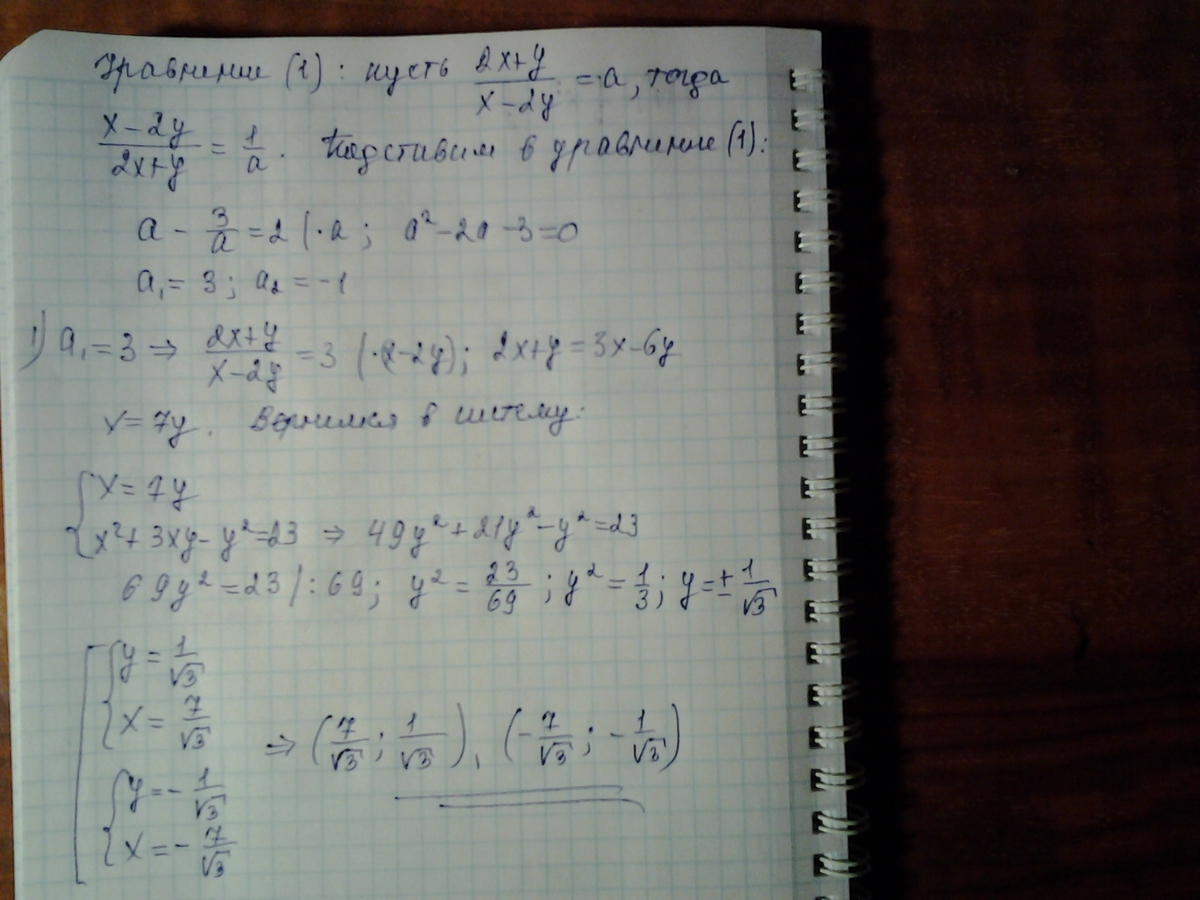 Уравнение (1): пусть (2x+y)/(x-2y) = a, тогда
(x-2y)/(2x+y) = 1/a. Подставим в уравнение (1):
a - 3/a = 2 |·a; a²-2a-3=0
a₁ = 3; a₂ = -1
1) a₁ = 3 ⇒ (2x+y)/(x-2y) = 3 |·(x-2y); 2x+y = 3x-6y
x = 7y. Вернимся в систему:
{ x = 7y
x²+3xy-y²=23 ⇒ 49y²+21y²-y²=23
69y² = 23 |:69; y² = 23/69; y² = 1/3; y = ± 1/√3
[ { y = 1/√3
x = 7/√3
⇒ (7/√3; 1/√3), (-7/√3; -1/√3)
{ y = - 1/√3
x = - 7/√3